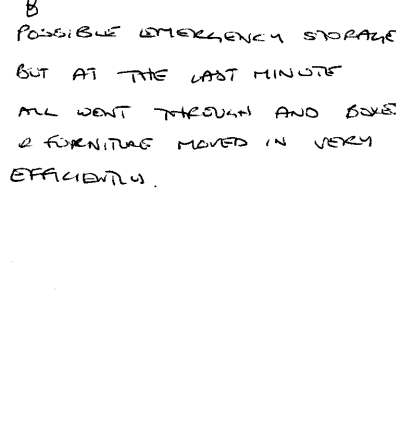 POSSIBLE EMERGENCY STORAGE
BUT AT THE LAST MINUTE
ALL WENT THROUGH AND BOXES
& FURNITURE MOVED IN VERY
EFFICIENTLY.